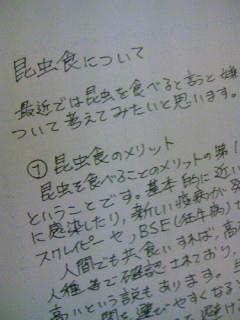 昆虫食について
最近では昆虫を食べると言うと嫌
ついて考えてみたいと思います。
① 昆虫食のメリット
昆虫を食べることのメリットの第1
ということです。基本的に近い
に感染したり、新しい疫病が発
スクレイピーや、BSE(狂牛病)な
人間でも共食いすれば、高
人種者で確認されており、
高いという説もあります。